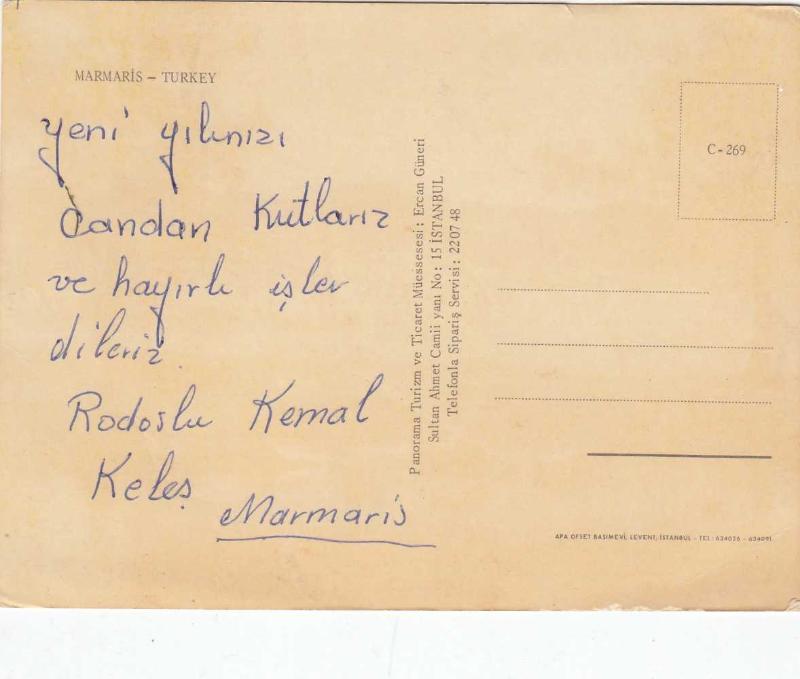 MARMARİS – TURKEY
yeni yılınızı
Candan Kutlarız
ve hayırlı işler
dileriz.
Rodoslu Kemal
Keleş
Marmaris
Panorama Turizm ve Ticaret Müessesesi : Ercan Güneri
Sultan Ahmet Camii yanı No : 15 İSTANBUL
Telefonla Sipariş Servisi : 22 07 48
C - 269
APA OFSET BASIMEVİ, LEVENT, İSTANBUL - TEL : 634026 - 634091